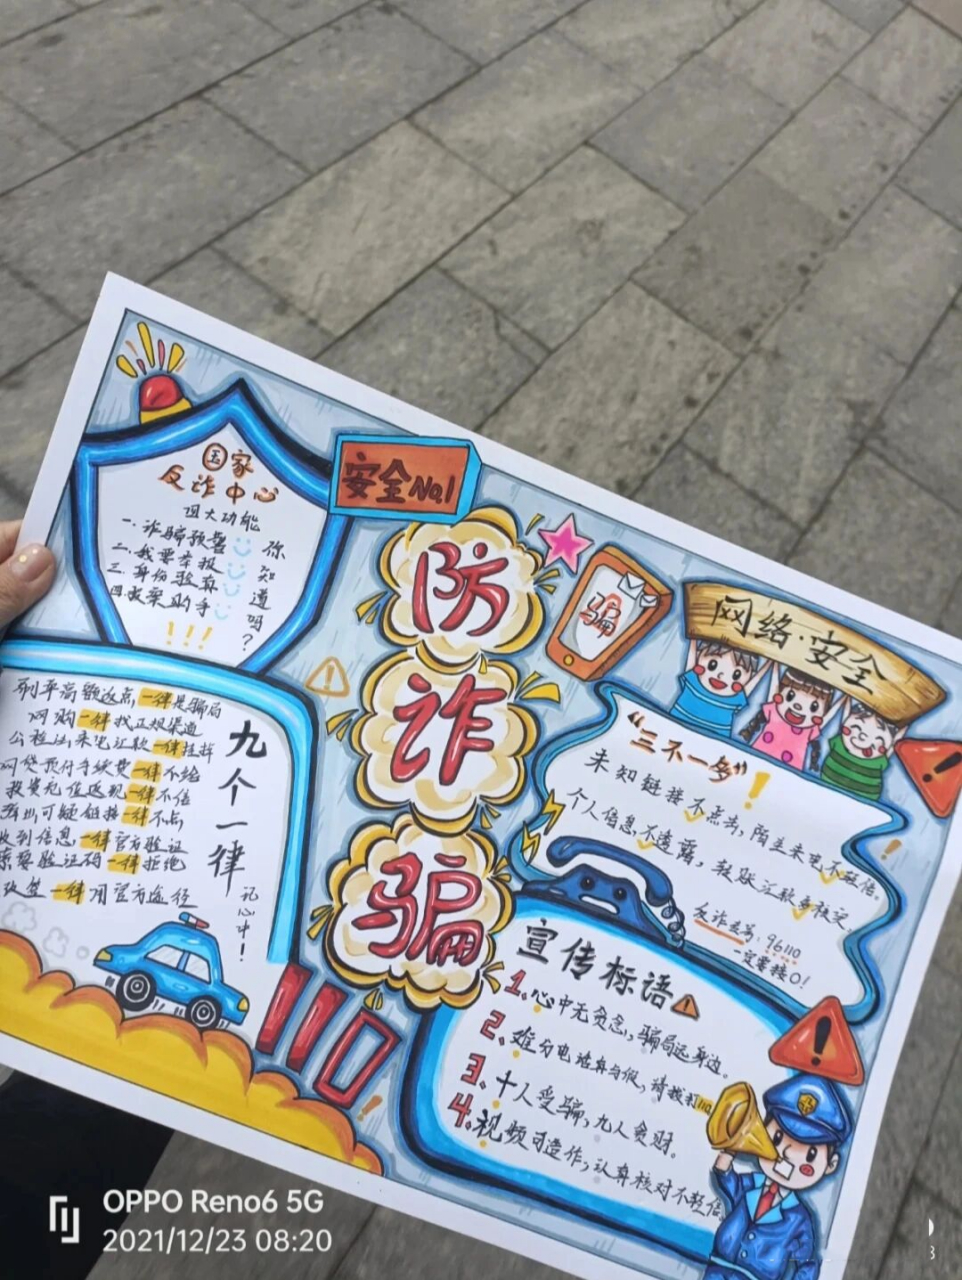 国家
反诈中心
四大功能
一.诈骗预警
二.我要举报
三.身份验真
四.
你知道吗？
!!!
安全No.1
防
诈
骗
骗
网络·安全
"三不一多"!
未知链接不点击，陌生来电不轻信。
个人信息不透露，转账汇款多核实。
反诈专为：96110
一定要接O！
九个一律
记心中！
刷单高额返点，一律是骗局
网购一律找正规渠道
公检法来电汇款一律挂掉
网贷预付手续费一律不给
投资 一律不信
可疑链接一律不点
收到信息，一律官方验证
索要验证码一律拒绝
一律用官方途径
110!
宣传标语
1.心中无贪念，骗局远身边。
2.难分电话真与假，请拨打110
3.十人受骗，九人贪财。
4.视频可造作，认真核对不轻信。
OPPO Reno6 5G
2021/12/23 08:20